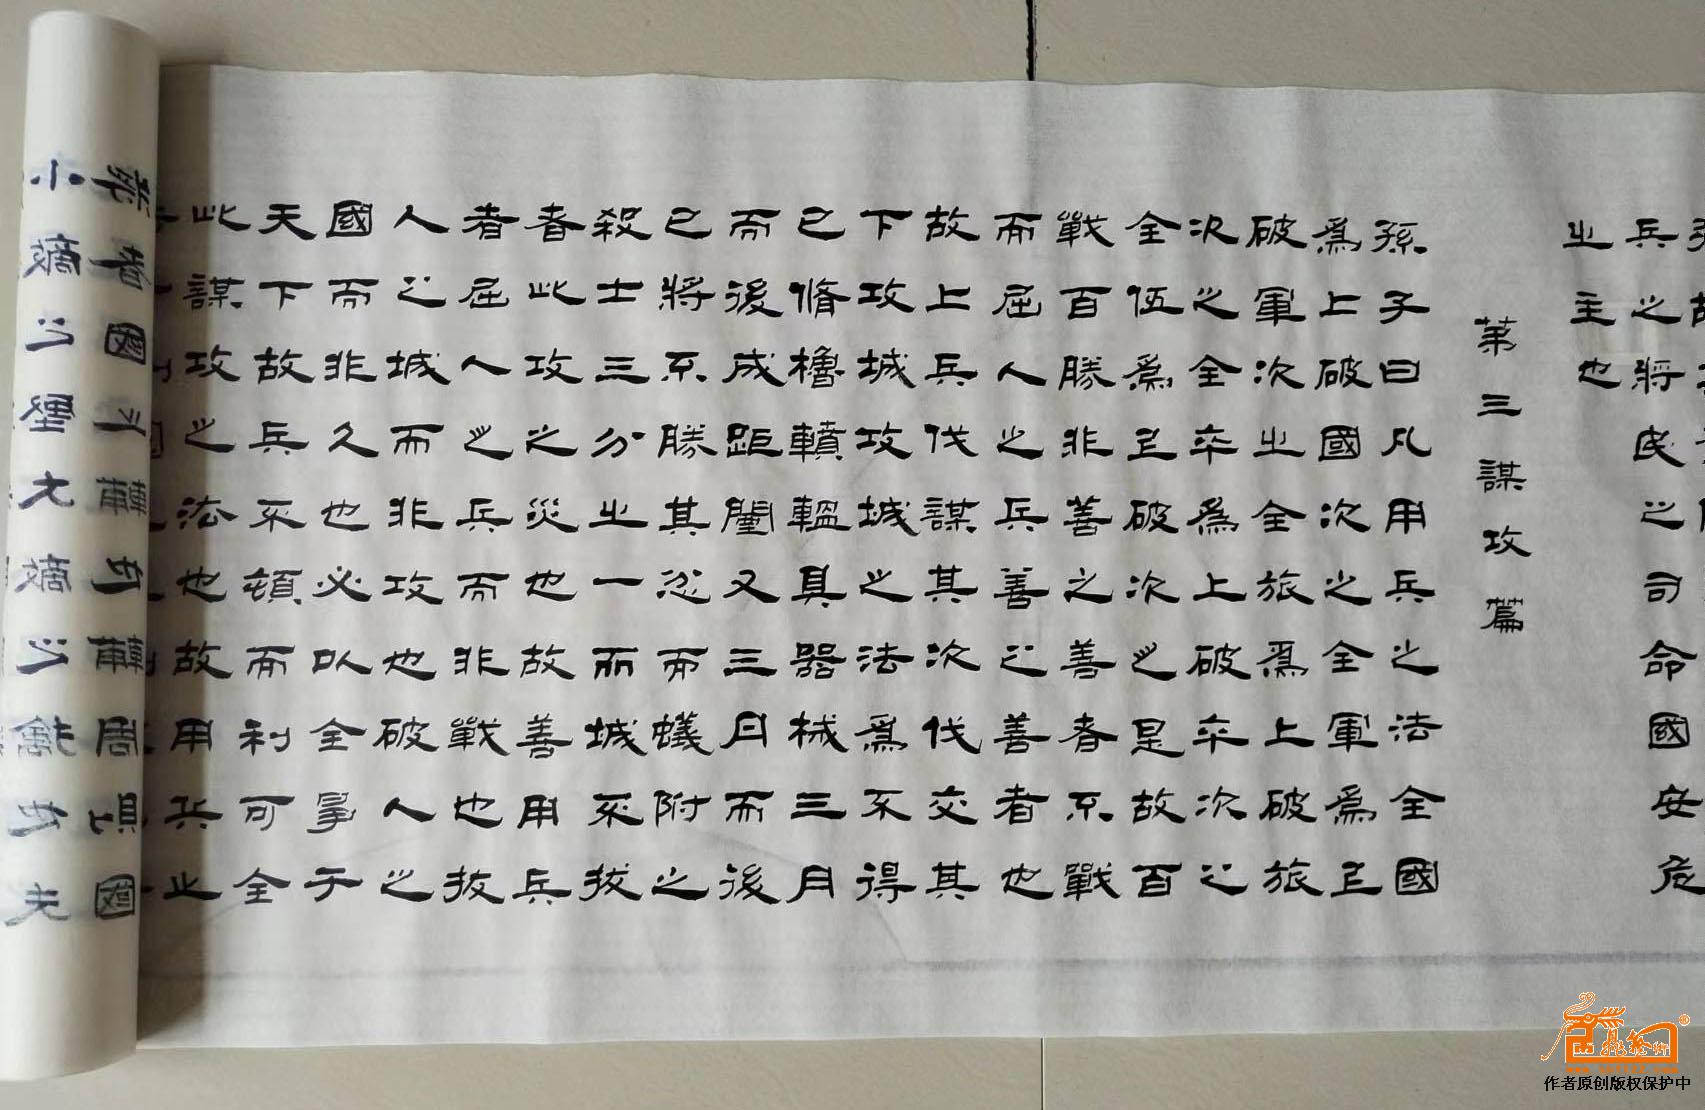 兵之將民之司命國安危
之主也
第三謀攻篇
孫子曰凡用兵之法全國
爲上破國次之全軍爲上
破軍次之全旅爲上破旅
次之全卒爲上破卒次之
全伍爲上破次之是故百
戰百勝非善之善者不戰
而屈人之兵善之善者也
故上兵伐謀其次伐交其
下攻城攻城之法爲不得
已脩櫓轒轀具器械三月
而後成距闉又三月而後
已將不勝其忿而蟻附之
殺士三分之一而城不拔
者此攻之災也故善用兵
者屈人之兵而非戰也拔
人之城而非攻也破人之
國而非久也必以全爭于
天下故兵不頓而利可全
此謀攻之法也故用兵之
小敵之堅大敵之擒也夫
將者國之輔也輔周則國
作者原创版权保护中